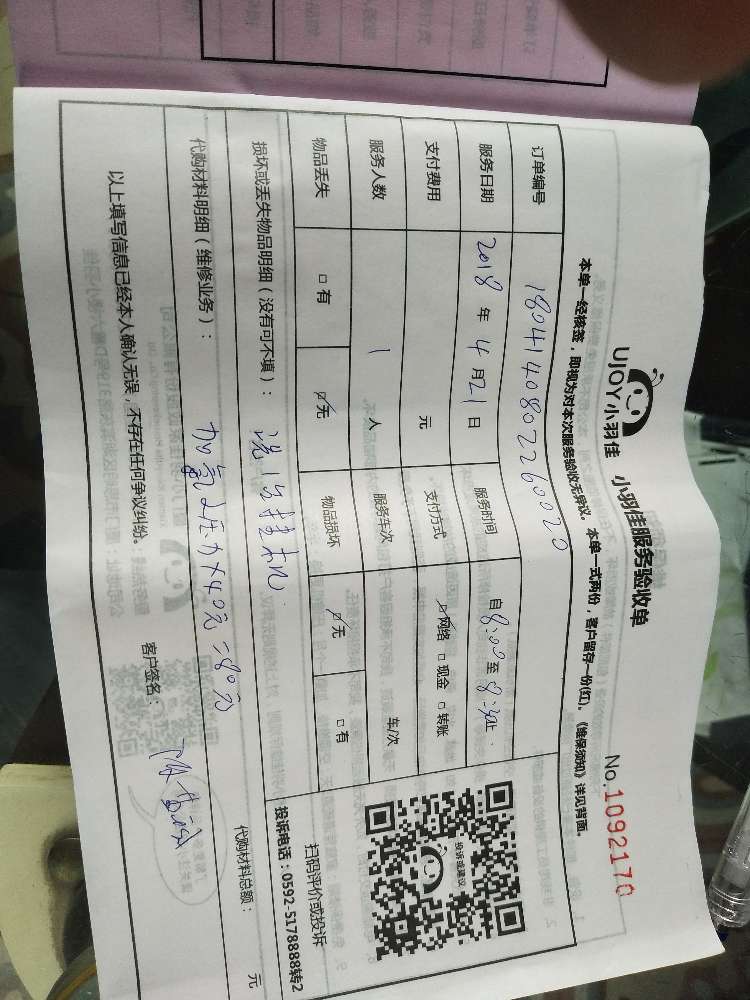 UJOY小羽佳 小羽佳服务验收单
No.1092170
本单一经核签，即视为对本次服务验收无异议。本单一式两份，客户留存一份(红)。《维保须知》详见背面。
订单编号 1804140802260020
服务日期 2018 年 4 月 21 日 服务时间 自 8:00 至
支付费用 元 支付方式 ☑网络 □现金 □转账
服务人数 1 人 服务车次 车/次
物品丢失 □有 ☑无 物品损坏 ☑无 □有
投诉或建议
扫码评价或投诉
投诉电话：0592-5178888转2
损坏或丢失物品明细（没有可不填）： 洗1台挂机.
代购材料明细（维修业务）： 加氟2压力×40元=80元
代购材料总额： 元
以上填写信息已经本人确认无误，不存在任何争议纠纷。 客户签名：